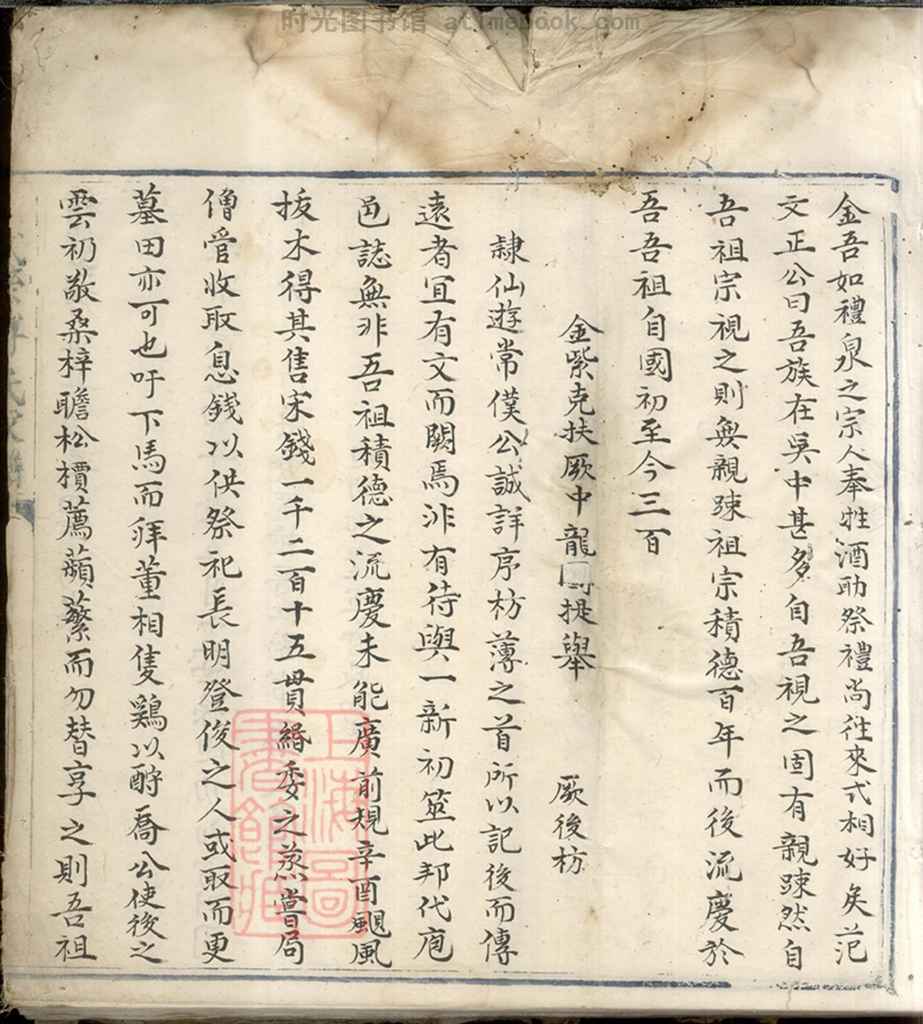 时光图书馆 atimebook.com
金吾如禮泉之宗人奉牲酒助祭禮尚徃來式相好矣范
文正公曰吾族在吳中甚多自吾視之固有親踈然自
吾祖宗視之則無親踈祖宗積德百年而後流慶於
吾吾祖自國初至今三百
金紫克扶厥中龍圖提舉 厥後枋
隸仙遊常僕公誠詳序枋薄之首所以記後而傳
遠者宜有文而闕焉非有待與一新初筮此邦代庖
邑誌無非吾祖積德之流慶未能廣前規辛酉颶風
拔木得其售宋錢一千二百十五貫緡委之蒸嘗局
僧管收取息錢以供祭祀長明登俊之人或取而更
墓田亦可也吁下馬而拜董相隻鷄以酹喬公使後之
雲礽敬桑梓瞻松檟薦蘋蘩而勿替享之則吾祖
上海圖書館藏